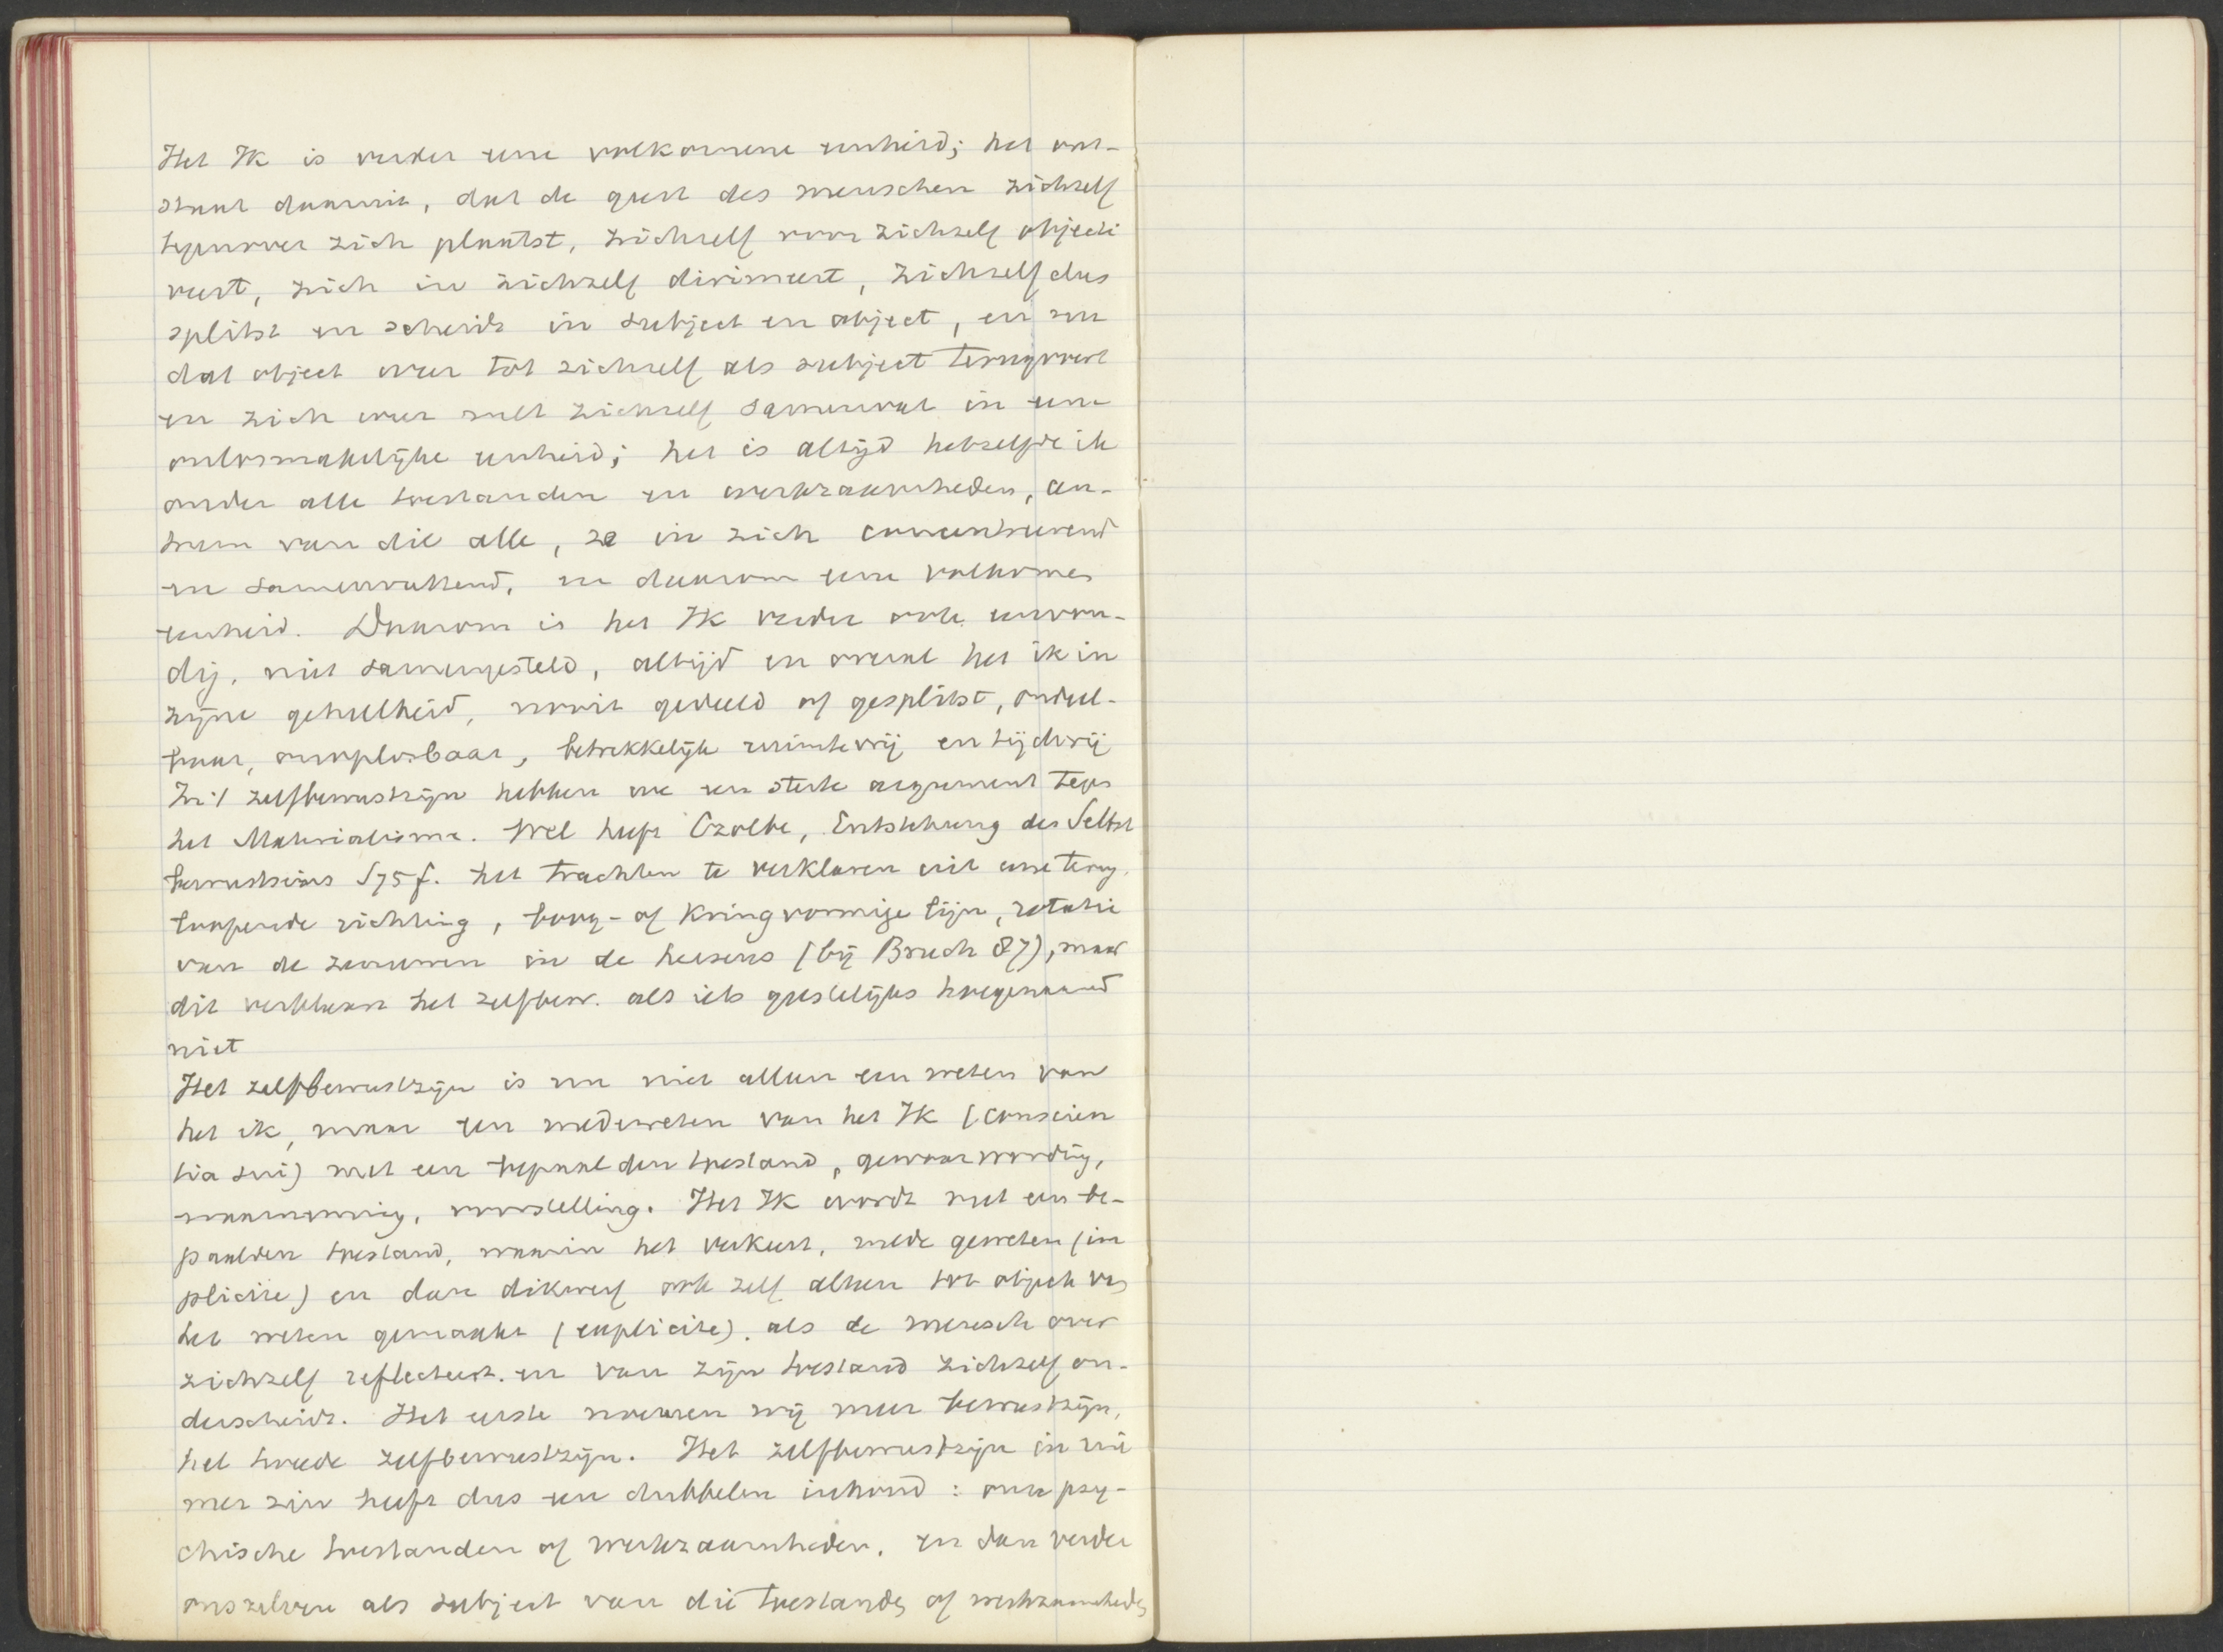 Het Ik is verder eene volkomene eenheid; het ont-
staat daaruit, dat de geest des menschen zichzelf
tegenover zich plaatst, zichzelf voor zichzelf objecti
veert, zich in zichzelf dirimeert, zichzelf dus
splitst en scheidt in subject en object, en nu
dat object weer tot zichzelf als subject terugvoert
en zich weer met zichzelf samenvat in eene
onlosmakelijke eenheid; het is altijd hetzelfde ik
onder alle toestanden en werkzaamheden, cen-
trum van die alle, ze in zich concentreerend
en samenvattend, en daarom eene volkomen
eenheid. Daarom is het Ik verder ook eenvou-
dig, niet samengesteld, altijd en overal het ik in
zijne geheelheid, nooit gedeeld of gesplitst, ondeel-
baar, onoplosbaar, betrekkelijk ruimtevrij en tijdvrij
In 't zelfbewustzijn hebben we een sterk argument tegen
het Materialisme. Wel heeft Czolbe, Entstehung des Selbst
bewustseins S 75 f. het trachten te verklaren uit eene terug
loopende richting, boog- of kringvormige lijn, rotatie
van de zenuwen in de hersens (bij Bruch 87), maar
dit verklaart het zelfbew. als iets geestelijks hoegenaamd
niet
Het zelfbewustzijn is nu niet alleen een weten van
het ik, maar een medeweten van het Ik (conscien
tia sui) met een bepaalden toestand, gewaarwording,
waarneming, voorstelling. Het Ik wordt met een be-
paalden toestand, waarin het verkeert, mede geweten (im
plicite) en dan dikwerf ook zelf alleen tot object van
het weten gemaakt (explicite). als de mensch over
zichzelf reflecteert. en van zijn toestand zichzelf on-
derscheidt. Het eerste noemen wij meer bewustzijn,
het tweede zelfbewustzijn. Het zelfbewustzijn in rui
mer zin heeft dus een dubbelen inhoud: onze psy-
chische toestanden of werkzaamheden, en dan verder
onszelven als subject van die toestanden of werkzaamheden